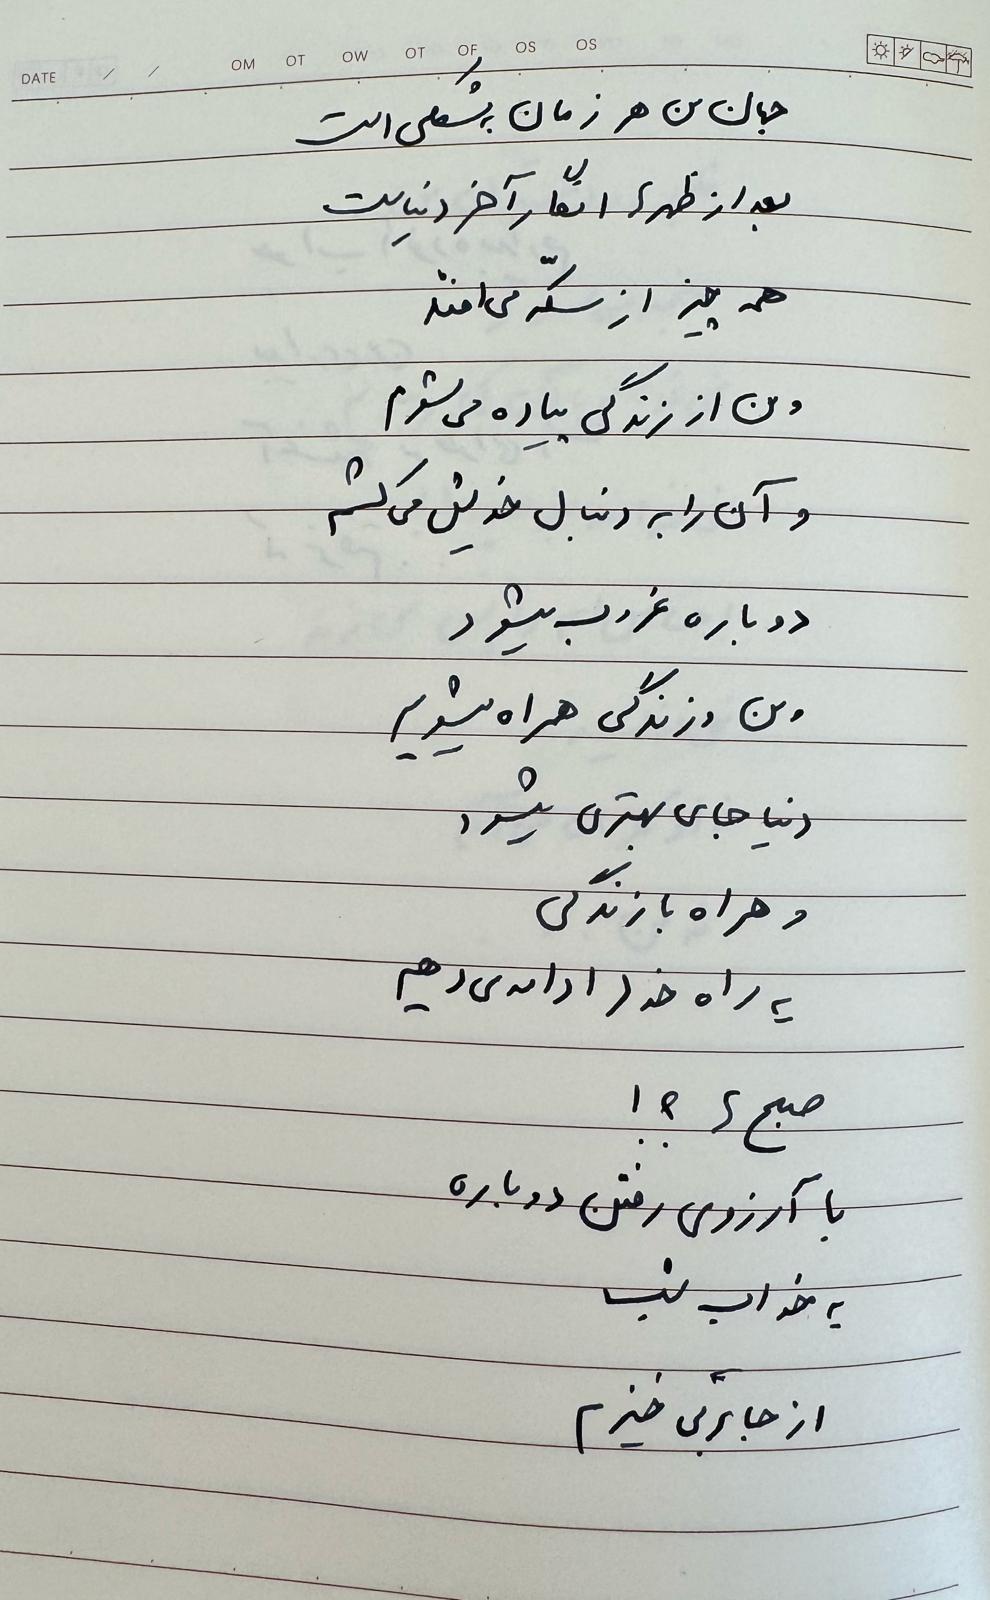 DATE / / OM OT OW OT OF OS OS
جهان من هر زمان به شکلی است
بعد از ظهرها انگار آخر دنیاست
همه چیز از سکّه می‌افتد
و من از زندگی پیاده می‌شوم
و آن را به دنبال خویش می‌کشم
دوباره غروب میشود
و من و زندگی همراه میشویم
دنیا جای بهتری میشود
و همراه با زندگی
به راه خود ادامه می‌دهیم
صبح ها ؟!
با آرزوی رفتن دوباره
به خواب شب
از جا بر می خیزم